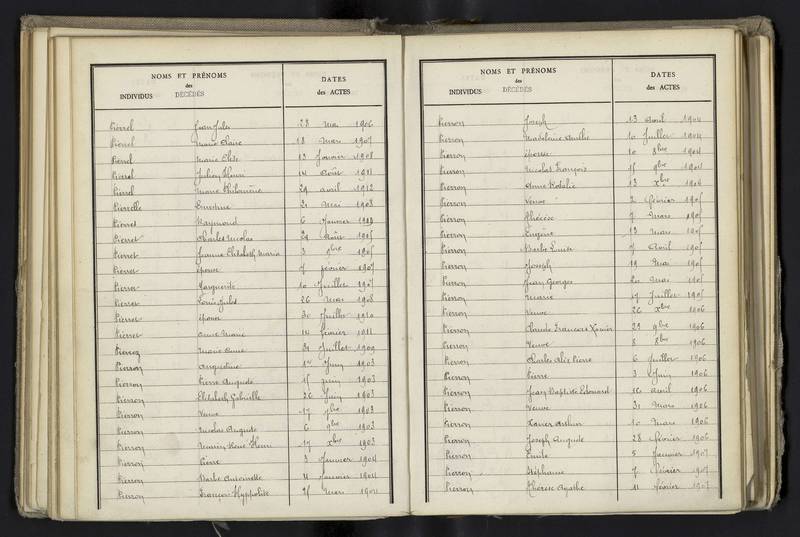 NOMS ET PRÉNOMS
des
INDIVIDUS DÉCÉDÉS
DATES
des ACTES
Pierrel Jean Jules 28 Mai 1906
Pierrel Marie Claire 18 Mars 1907
Pierrel Marie Elise 13 Janvier 1908
Pierrel Julien Henri 14 Août 1911
Pierrel Marie Philomène 29 avril 1912
Pierrelle 21 Mai 1908
Pierret Raymond 6 Janvier
Pierret Charles Nicolas 29 Août
Pierret Jeanne Elisabeth Maria 3 9bre
Pierret épouse 7 février 1907
Pierret Marguerite 10 Juillet 1907
Pierret Louis Jules 26 Mai 1908
Pierret épouse 30 Juillet 1910
Pierret Anne Marie 14 février 1911
Marie Anne Juillet 1909
Pierron Augustine 17 Juin 1903
Pierron Pierre Auguste 15 Juin 1903
Pierron Elisabeth Gabrielle 26 Juin 1903
Pierron Veuve 17 1903
Pierron Nicolas Auguste 6 9bre 1903
Pierron Henri 17 Xbre 1903
Pierron Pierre 3 Janvier 1904
Pierron Barbe Antoinette Janvier 1904
Pierron François Hyppolite 25 Mars 1904
NOMS ET PRÉNOMS
des
INDIVIDUS DÉCÉDÉS
DATES
des ACTES
Pierron Joseph 13 Avril 1904
Pierron Madeleine 10 Juillet 1904
Pierron épouse 10 8bre 1904
Pierron Nicolas François 15 9bre 1904
Pierron Anne Rosalie 13 Xbre 1904
Pierron Veuve 2 février 1905
Pierron Thérèse 7 Mars 1905
Pierron Eugène 13 Mars 1905
Pierron Barbe 7 Avril 1905
Pierron Joseph 19 Mai 1905
Pierron Jean Georges Mai 1905
Pierron Marie 17 Juillet 1905
Pierron Veuve 26 Xbre 1906
Pierron Claude François Xavier 29 9bre 1906
Pierron Veuve 8 8bre 1906
Pierron Charles Pierre 6 Juillet 1906
Pierron Pierre 3 Juin 1906
Pierron Jean Baptiste Edouard avril 1906
Pierron Veuve 31 Mars 1906
Pierron Xavier Arthur 10 Mars 1906
Pierron Joseph Auguste 28 février 1906
Pierron Emile 5 Janvier 1907
Pierron Stéphanie 7 février 1907
Pierron Thérèse Agathe 11 février 1907